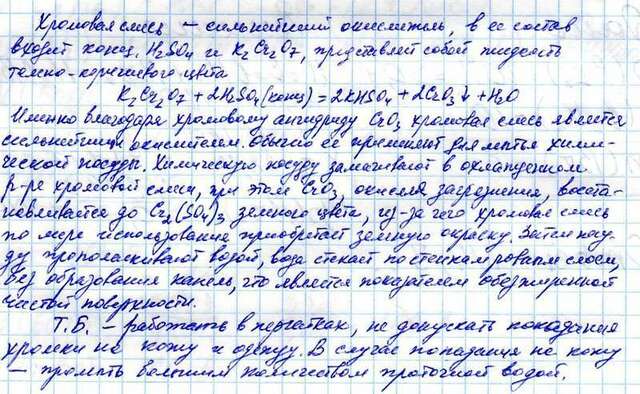 Хромовая смесь – сильнейший окислитель, в ее состав
входит конц. H₂SO₄ и K₂Cr₂O₇, представляет собой жидкость
темно-коричневого цвета
K₂Cr₂O₇ + 2H₂SO₄(конц) = 2KHSO₄ + 2CrO₃↓ + H₂O
Именно благодаря хромовому ангидриду CrO₃ хромовая смесь является
сильнейшим окислителем. Обычно ее применяют для мытья хими-
ческой посуды. Химическую посуду замачивают в охлажденном
р-ре хромовой смеси, при этом CrO₃, окисляя загрязнения, восста-
навливается до Cr₂(SO₄)₃ зеленого цвета, из-за чего хромовая смесь
по мере использования приобретает зеленую окраску. Затем посу-
ду прополаскивают водой, вода стекает по стенкам ровным слоем,
без образования капель, что является показателем обезжиренной
чистой поверхности.
Т.Б. – работать в перчатках, не допускать попадания
хромки на кожу и одежду. В случае попадания на кожу
– промыть большим количеством проточной водой.